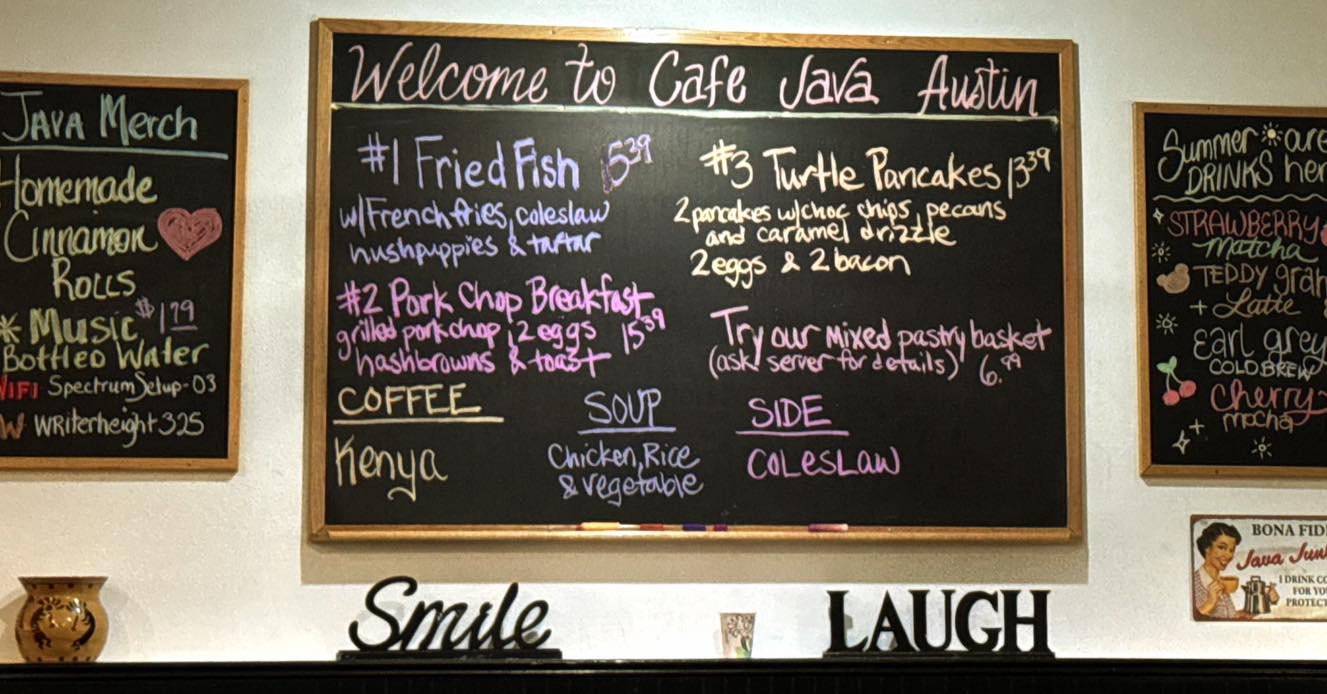 JAVA Merch
Homemade
Cinnamon
Rolls
* Music $1.79
Bottled Water
WIFI SpectrumSetup-03
PW writerheight325
Welcome to Cafe Java Austin
#1 Fried Fish 15.39
w/French fries, coleslaw
hushpuppies & tartar
#2 Pork Chop Breakfast
grilled pork chop, 2 eggs 15.39
hashbrowns & toast
#3 Turtle Pancakes 13.39
2 pancakes w/choc chips, pecans
and caramel drizzle
2 eggs & 2 bacon
Try our mixed pastry basket
(ask server for details) 6.99
COFFEE
Kenya
SOUP
Chicken, Rice
& vegetable
SIDE
COLESLAW
Summer are
DRINKS her
STRAWBERRY
Matcha
TEDDY gra
+ Latte
Earl grey
COLD BREW
Cherry
mocha
BONA FID
Java Jun
I DRINK CO
FOR YO
PROTECT
Smile
LAUGH